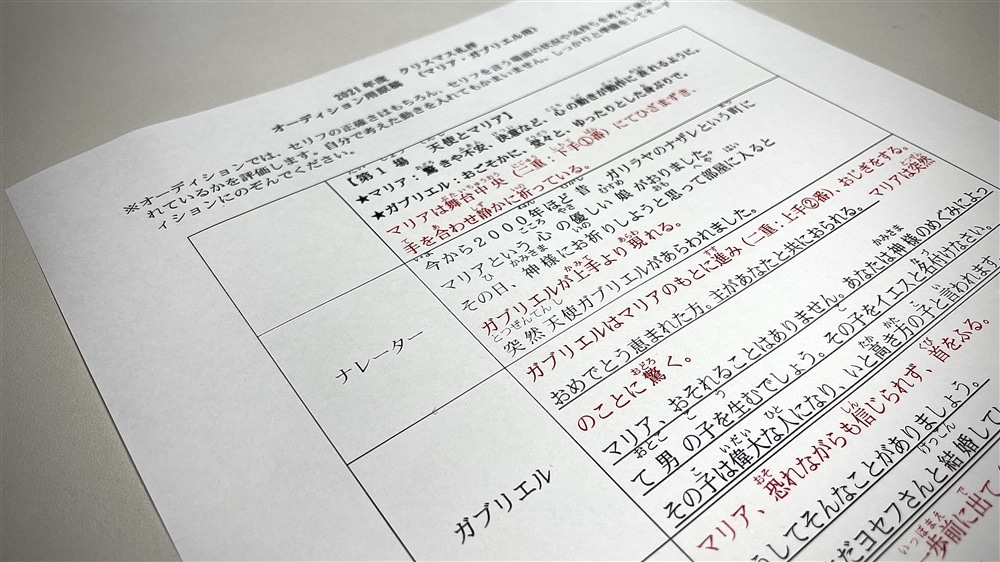 2021年度　クリスマス礼拝
オーディション用原稿　（マリア・ガブリエル用）
※オーディションでは、セリフの正確さはもちろん、セリフを言う場面の状況や気持ちを考えて
れているかを評価します。自分で考えた動きを入れてもかまいません。しっかりと準備をしてオーデ
ィションにのぞんでください。
【第1場　天使とマリア】
★マリア：驚きや不安、決意など、心の動きが動作に表れるように。
★ガブリエル：おごそかに、堂々と、ゆったりとした
マリアは舞台中央（二重：下手①番）にてひざまずき、
手を合わせ静かに祈っている。
ナレーター
今から2000年ほど昔、ガリラヤのナザレという町に
マリアという心の優しい娘がおりました。
その日、神様にお祈りしようと思って部屋に入ると
ガブリエルが上手より現れる。
突然天使ガブリエルがあらわれました。
ガブリエル
ガブリエルはマリアのもとに進み（二重：上手②番）、おじぎをする。
おめでとう恵まれた方。主があなたと共におられる。 マリアは突然
のことに驚く。
マリア、おそれることはありません。あなたは神様のめぐみによっ
て男の子を生むでしょう。その子をイエスと名付けなさい。
その子は偉大な人になり、いと高き方の子と言われます
マリア、恐れながらも信じられず、首をふる。
うしてそんなことがありましょう。
だヨセフさんと結婚して
一歩前に出て